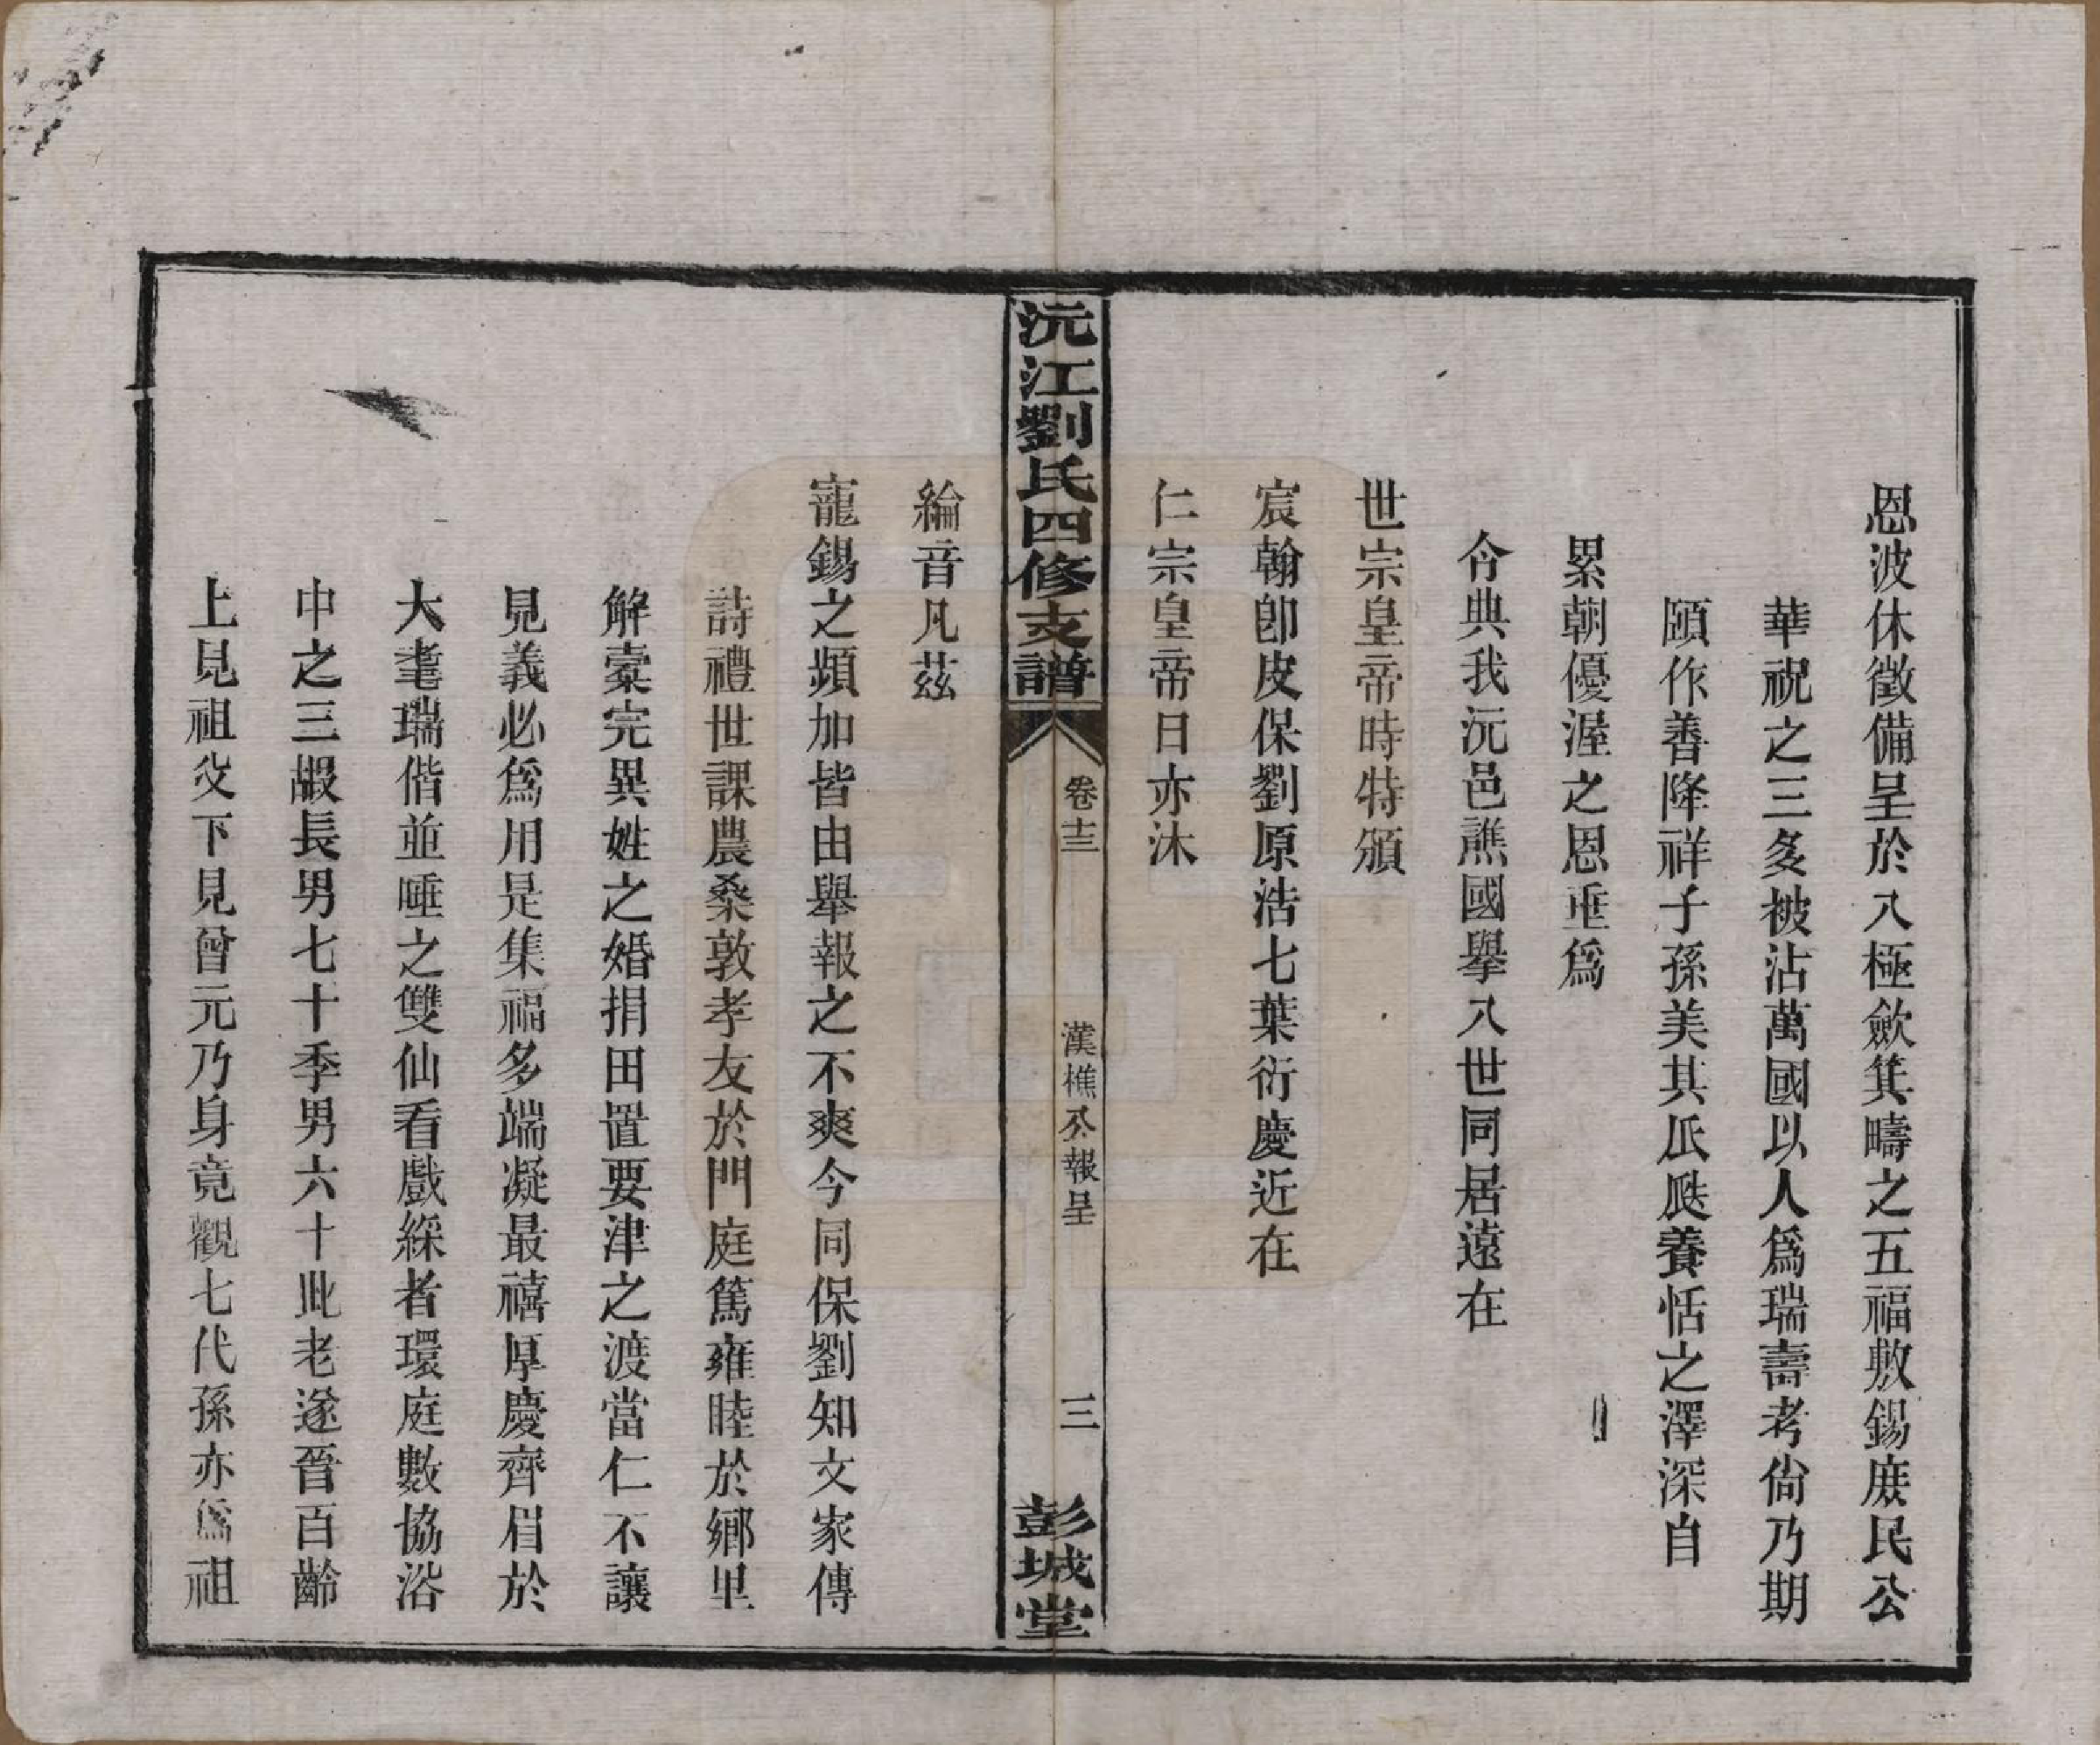 恩波休徵備呈於八極歛箕疇之五福敷錫庶民公
華祝之三多被沾萬國以人爲瑞壽考尙乃期
頤作善降祥子孫美其瓜瓞養恬之澤深自
累朝優渥之恩重爲
令典我沅邑譙國舉八世同居遠在
世宗皇帝時特頒
宸翰卽皮保劉原浩七葉衍慶近在
仁宗皇帝日亦沐
沅江劉氏四修支譜
卷十三
漢樵公報呈
三
彭城堂
綸音凡茲
寵錫之頻加皆由舉報之不爽今同保劉知文家傳
詩禮世課農桑敦孝友於門庭篤雍睦於鄉里
解橐完異姓之婚捐田置要津之渡當仁不讓
見義必爲用是集福多端凝最禧厚慶齊眉於
大耄瑞偕並唾之雙仙看戲綵者環庭數協浴
中之三嘏長男七十季男六十此老遂晉百齡
上見祖父下見曾元乃身竟觀七代孫亦爲祖